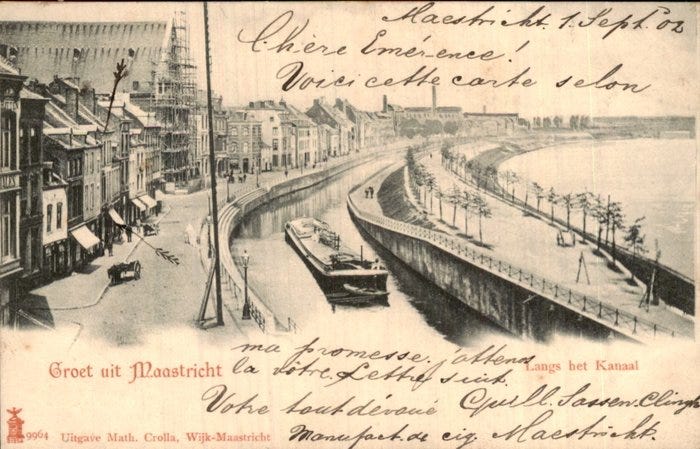 Maestricht. 1. Sept. 02
Chère Emérence!
Voici cette carte selon
ma promesse. j'attends
la vôtre. Lettre suit.
Votre tout dévoué
Manufact. de cig. Maestricht.
Groet uit Maastricht
Langs het Kanaal
9964 Uitgave Math. Crolla, Wijk-Maastricht